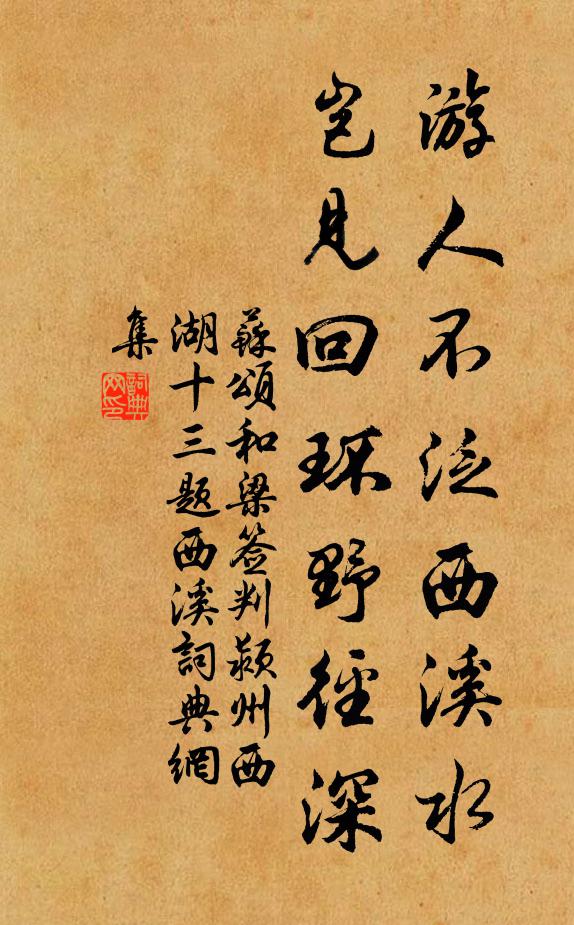 游人不泛西溪水
岂见回环野径深
蘇颂和梁签判颍州西
湖十三题西溪詞典網
集
詞典网印